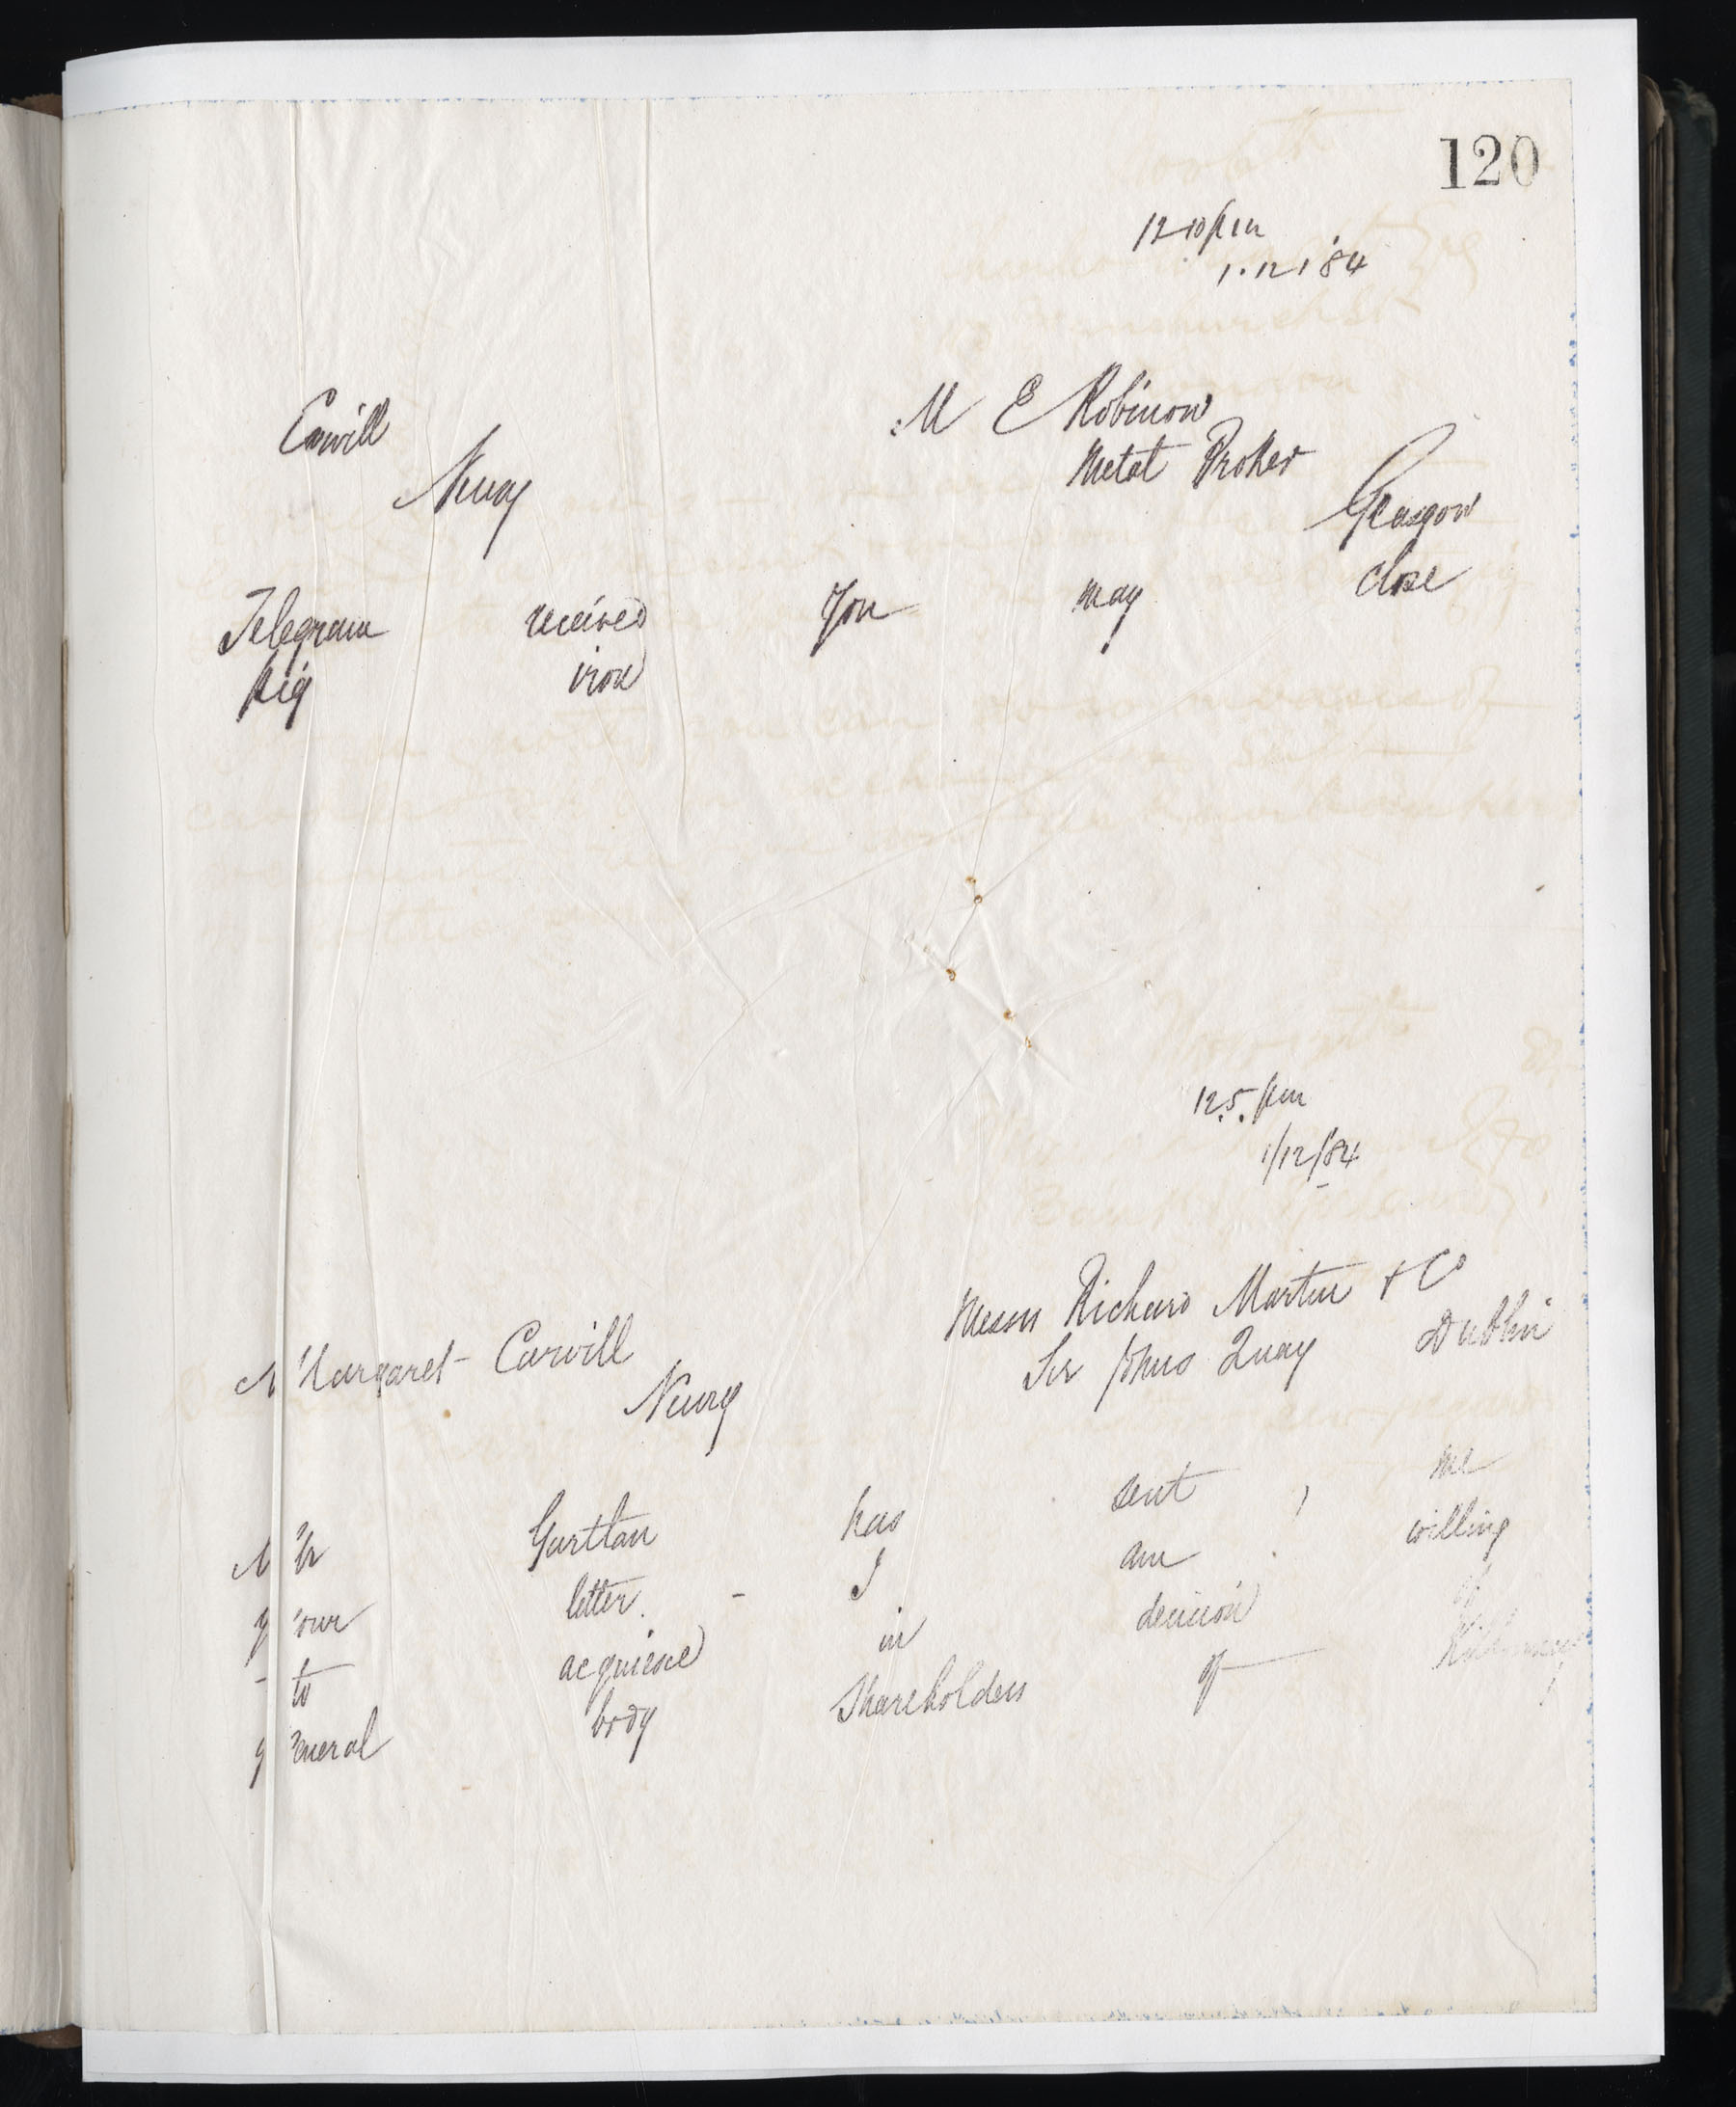 120
12 10 pm
1.12/'84
Carvill
Newry
M E Robinow
Metal Broker
Glasgow
Telegram received You may close
pig iron
12.5. pm
1/12/'84
Margaret Carvill
Newry
Messrs Richard Martin & Co
Sir Johns Quay Dublin
Mr Gartlan has sent me
your letter. - I am willing
to acquiesce in decision of
general body Shareholders of